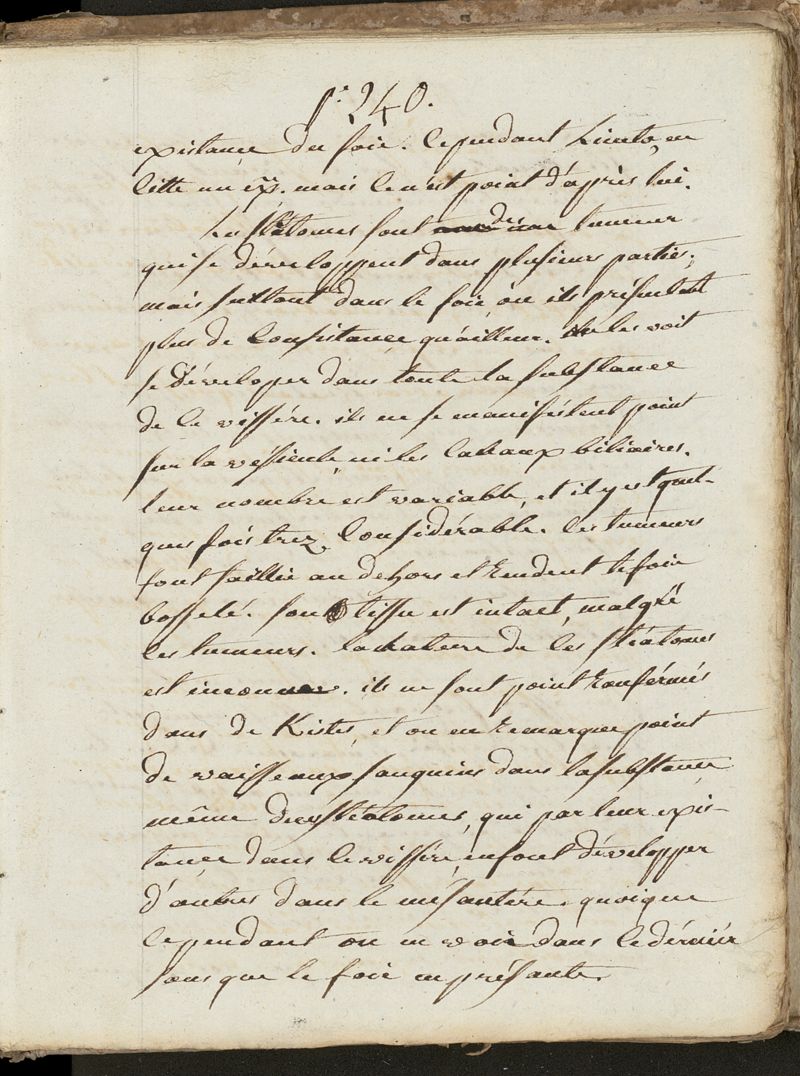 240.
existance du foie. cependant Lieuto, en
citte un ex. mais ce n'est point d'après lui.
Les stéatomes sont des tumeur
qui se développent dans plusieurs parties,
mais surtout dans le foie, ou ils présentent
plus de consistance qu'ailleur. on les voit
se développer dans toute la substance
de ce vissére. ils ne se manifestent point
sur la véssicule, ni les canaux biliaires.
leur nombre est variable, et il y est quel-
ques fois trez considérable. ces tumeurs
font saillie au dehors et rendent le foie
bosselé. son tissu est intact, malgré
les tumeurs. la nature de ces stéatomes
est inconnue. ils ne sont point renfermés
dans de Kistes, et on en remarque point
de vaisseaux sanguins dans la substance
même des stéatomes, qui par leur exis-
tance dans le vissére, en font développer
d'autres dans le mésantére. quoique
cependant on en voie dans le dérniér
sans que le foie en présante.